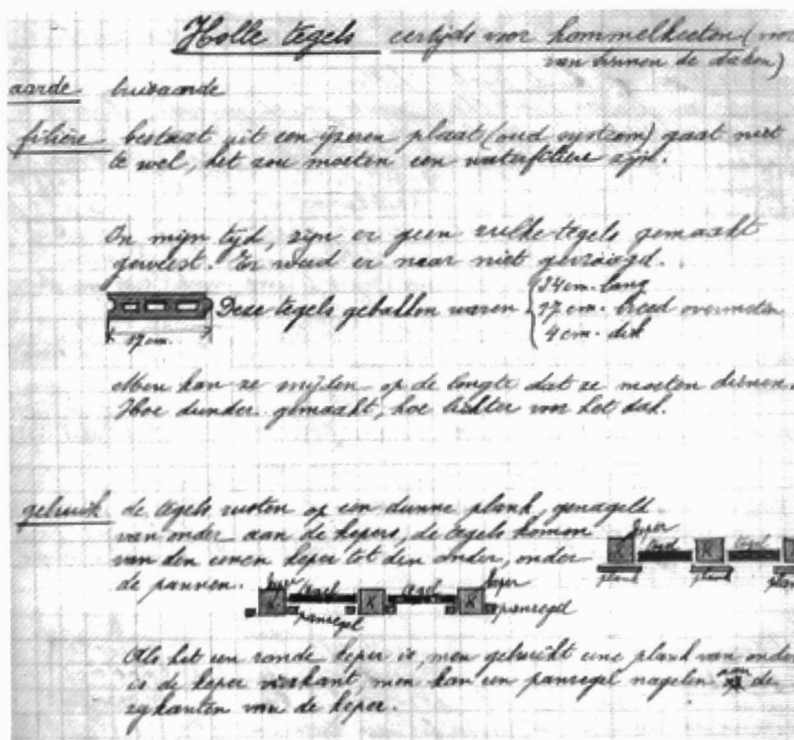 Holle tegels eertijds voor hommelkeeten (voor
van binnen de daken)
aarde buisaarde
filière bestaat uit een ijzeren plaat (oud systeem) gaat niet
te wel, het zou moeten een waterfiliere zijn.
In mijn tijd, zijn er geen zulke tegels gemaakt
geweest. Er werd er naar niet gevraagd.
17 cm. Deze tegels gebakken waren
34 cm. lang
17 cm. breed overmeten
4 cm. dik
Men kan ze snijden op de lengte dat ze moeten dienen.
Hoe dunder gemaakt, hoe lichter voor het dak.
gebruik de tegels rusten op een dunne plank, genageld
van onder aan de kepers, de tegels komen
van den eenen keper tot den ander, onder
de pannen.
keper tegel tegel
K K K
plank plank plank
keper tegel tegel keper
K K K
panregel panregel
Als het een ronde keper is, men gebruikt eene plank van onder
is de keper vierkant, men kan een panregel nagelen aan de
zijkanten van de keper.